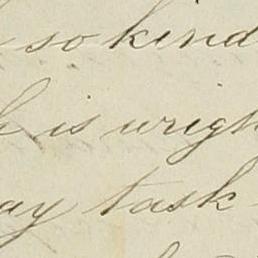 so kind
h is wright
ay task